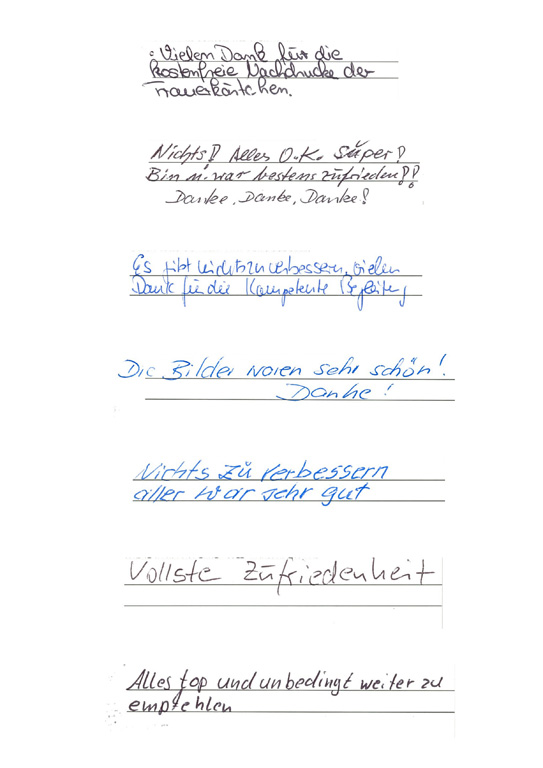 : Vielen Dank für die
kostenfreie Nachdrucke der
Trauerkärtchen.
Nichts! Alles O.K. Super!
Bin u. war bestens zufrieden!!
Danke, Danke, Danke!
Es gibt nichts zu verbessern, vielen
Dank für die kompetente Begleitg
Die Bilder waren sehr schön!
Danke!
Nichts zu verbessern
aller war sehr gut
Vollste Zufriedenheit
Alles top und unbedingt weiter zu
empfehlen